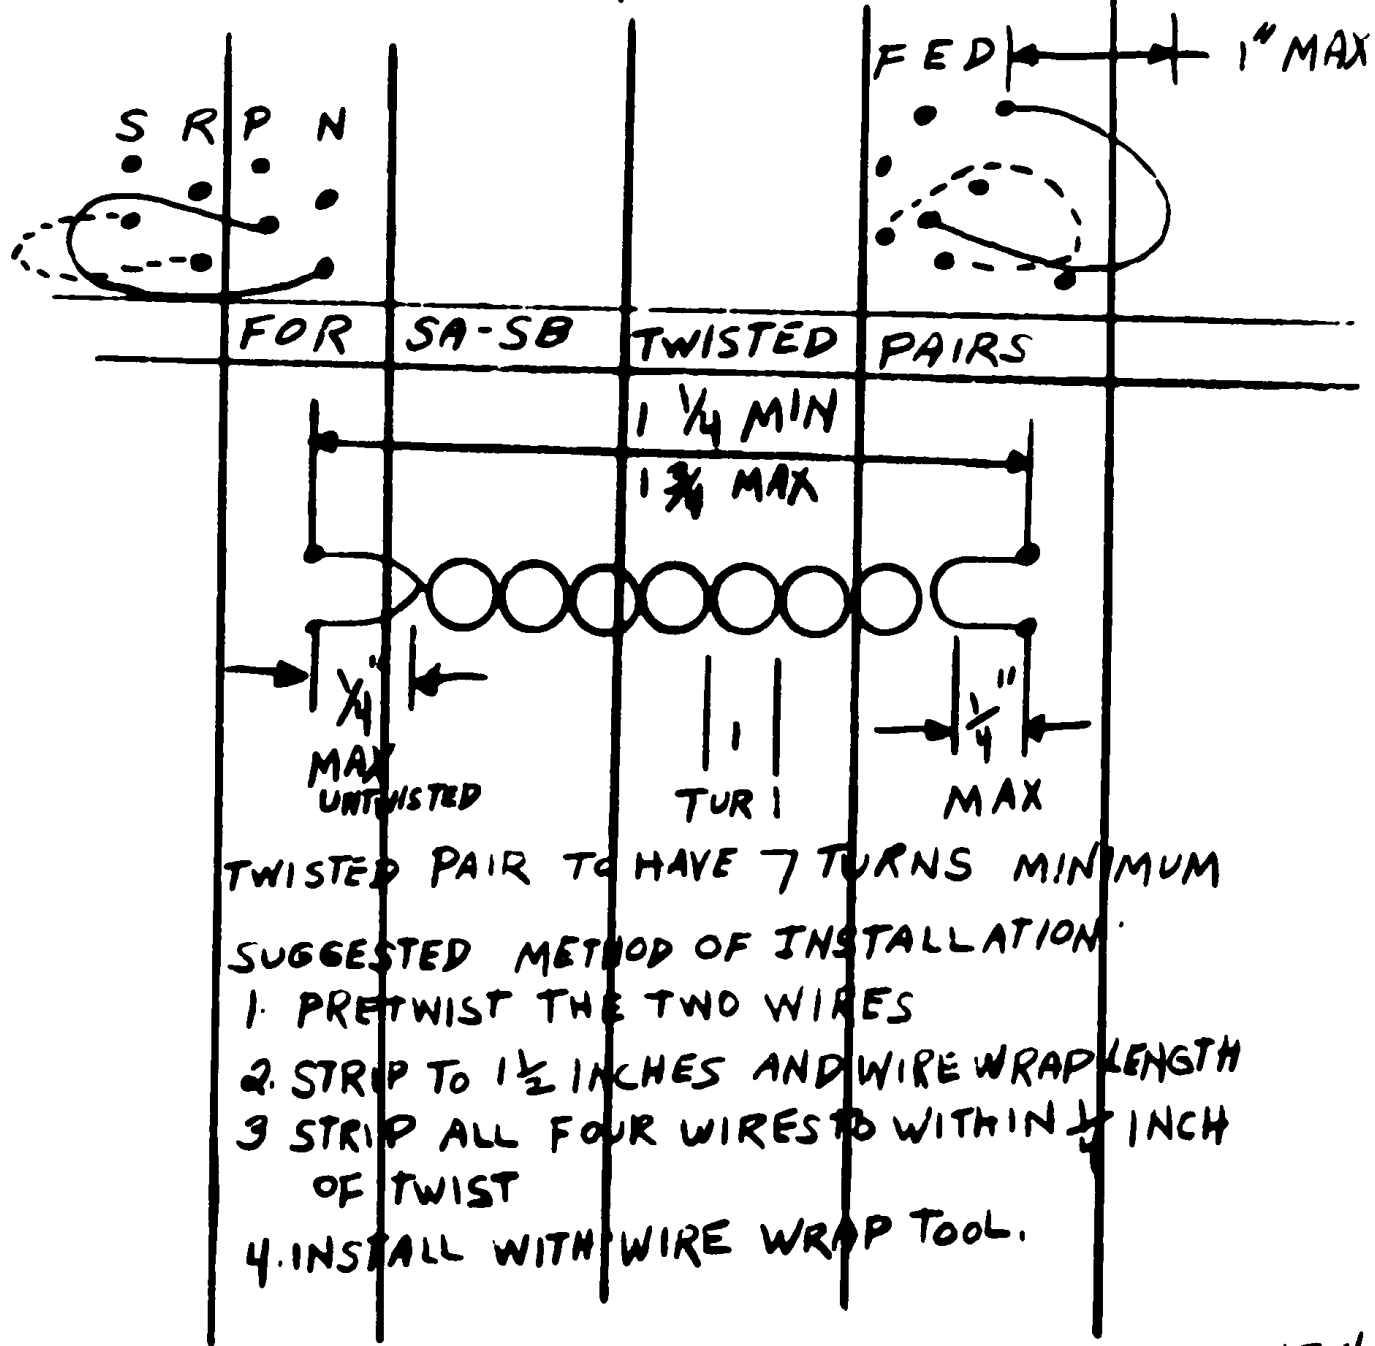 FED 1" MAX
S R P N
FOR SA-SB TWISTED PAIRS
1 1/4 MIN
1 3/4 MAX
1/4" 1/4"
1
MAX MAX
UNTWISTED TUR1
TWISTED PAIR TO HAVE 7 TURNS MINIMUM
SUGGESTED METHOD OF INSTALLATION
1. PRETWIST THE TWO WIRES
2. STRIP TO 1 1/2 INCHES AND WIRE WRAP LENGTH
3 STRIP ALL FOUR WIRES TO WITHIN 1/4 INCH
OF TWIST
4. INSTALL WITH WIRE WRAP TOOL.